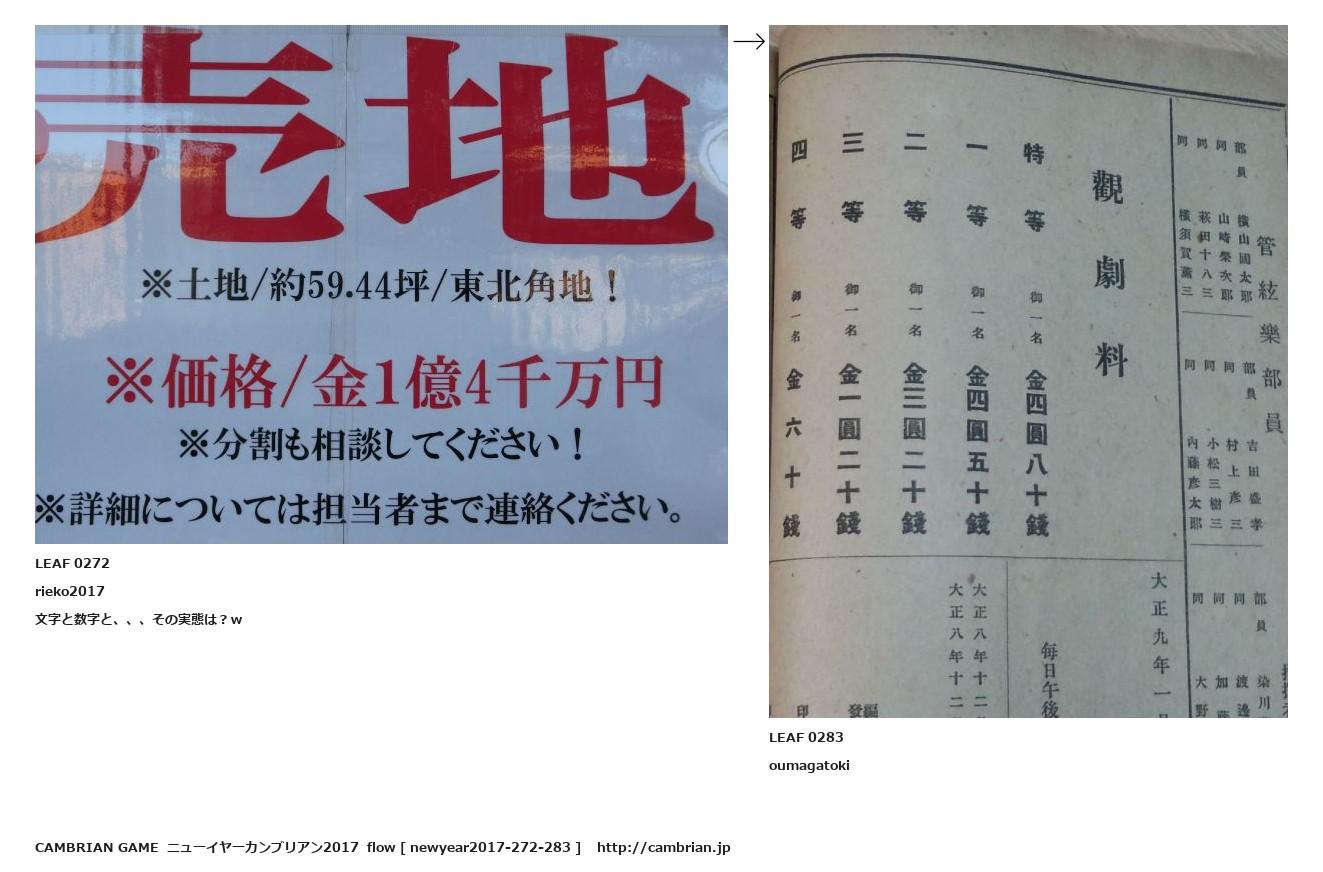 売地
※土地/約59.44坪/東北角地！
※価格/金1億4千万円
※分割も相談してください！
※詳細については担当者まで連絡ください。
LEAF 0272
rieko2017
文字と数字と、、、その実態は？w
管絃樂部員
部員 横山國太郎
同 山崎榮次郎
同 萩田十八三
同 横須賀薫三
部員 吉田盛孝
同 村上彦三
同 小松三樹三
同 内藤彦太郎
部員 染川
同 渡邊
同 加藤
同 大野
觀劇料
特等 御一名 金四圓八十錢
一等 御一名 金四圓五十錢
二等 御一名 金三圓二十錢
三等 御一名 金一圓二十錢
四等 御一名 金六十錢
大正九年一
毎日午後
大正八年十二
大正八年十二
編
發
印
LEAF 0283
oumagatoki
CAMBRIAN GAME ニューイヤーカンブリアン2017 flow [ newyear2017-272-283 ] http://cambrian.jp